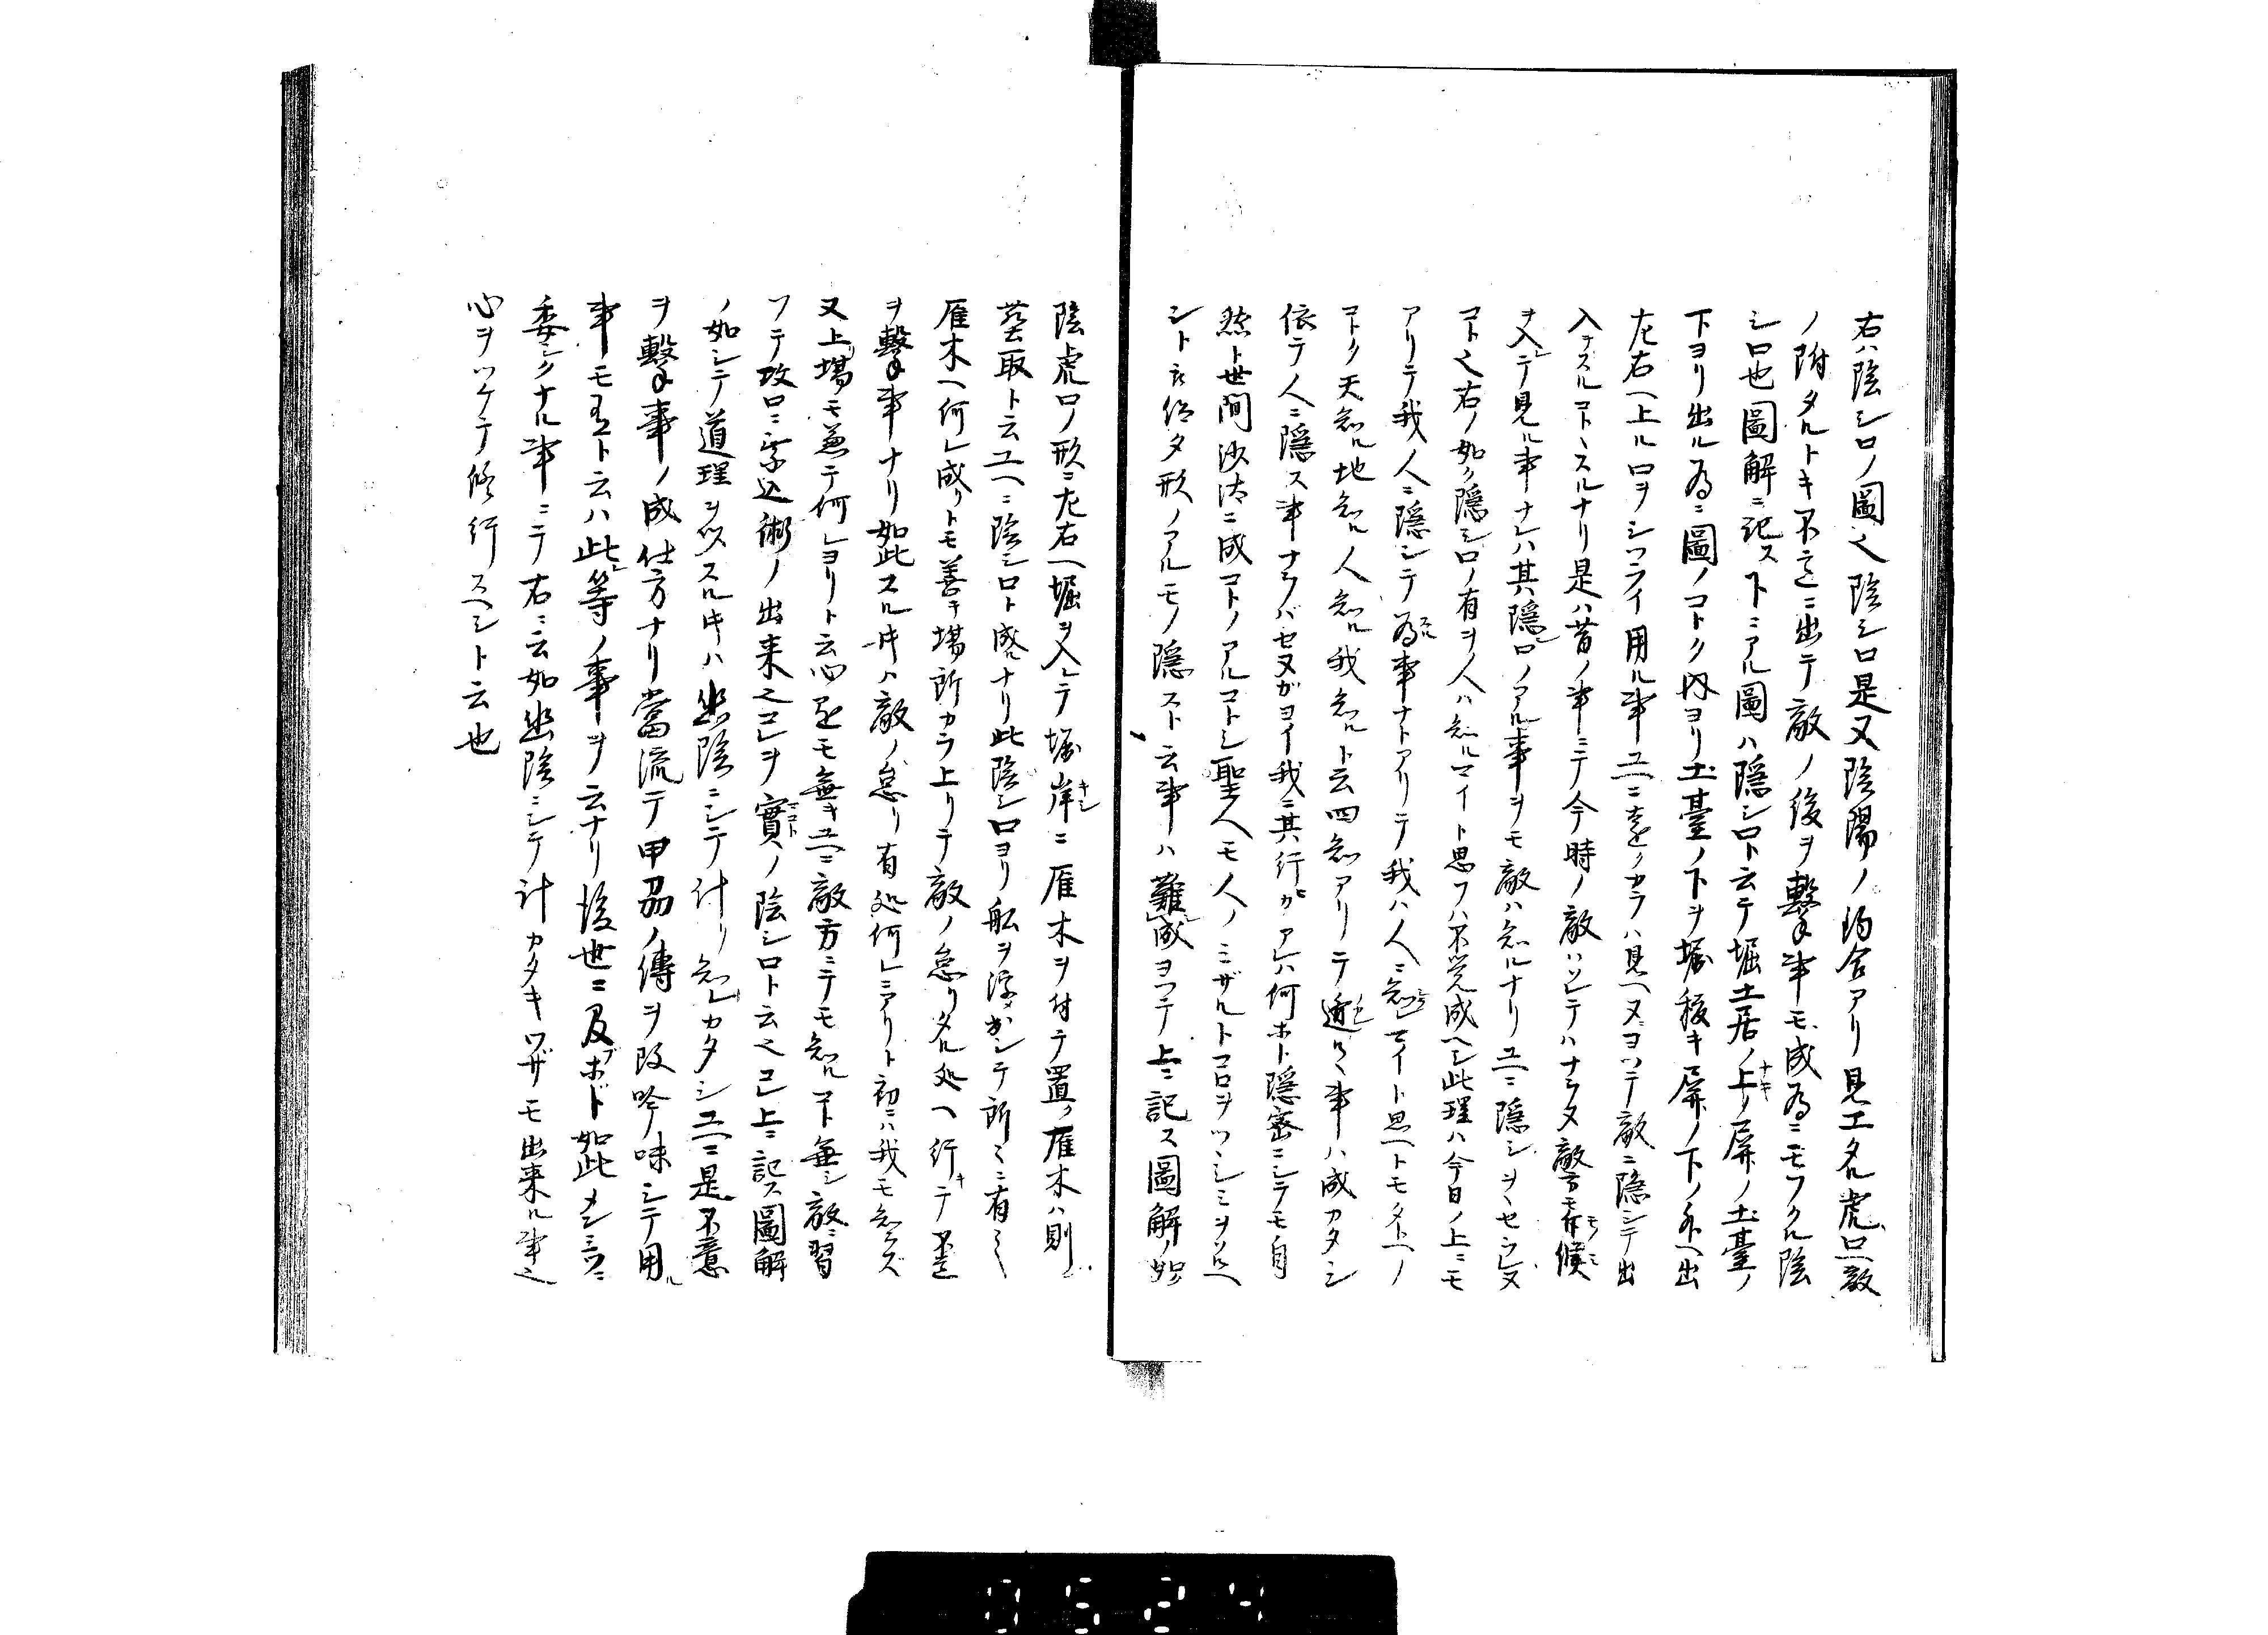 右ハ陰シロノ圖也陰シロ是又陰陽ノ均合アリ見エタル虎口ヘ敵
ノ附タルトキ不意ニ出テ敵ノ後ヲ撃事モ成為ニモフクル陰
シロ也圖解ニ記ス下ニアル圖ハ隠シロト云テ堀土居ノ上ナキ屏ノ土臺ノ
下ヨリ出ル為ニ圖ノコトク内ヨリ土臺ノ下ヲ堀移キ屏ノ下ノ外ヘ出
左右ヘ上ル口ヲシツライ用ル事ユヘニ遠クカラハ見ヘヌヨツテ敵ニ隠シテ出
入ナスルコトヽスルナリ是ハ昔ノ事ニテ今時ノ敵ハソレテハナラヌ敵方モ作候
ヲ入レテ見ル事ナレハ其隠口ノアル事ヲモ敵ハ知ルナリユヘニ隠シヲヽセラレヌ
コト也右ノ如ク隠シロノ有ヲ人ハ知ルマイト思フハ不覚成ヘシ此理ハ今日ノ上ニモ
アリテ我人ニ隠シテ為事ナトアリテ我ハ人ニ知レマイト思ヘトモタトヘノ
コトク天知ル地知ル人知ル我知ルト云四知アリテ遁ルヽ事ハ成カタシ
依テ人ニ隠ス事ナラバセヌガヨイ我ニ其行カアレハ何ホト隠密ニシテモ自
然ト世間沙汰ニ成コトノアルコトシ聖人モ人ノミザルトコロヲツヽシミヲソレヘ
シト被仰タ形ノアルモノ隠スト云事ハ難成ヨツテ上ニ記ス圖解ノ如
陰虎口ノ形ニ左右ヘ堀ヲ入レテ堀岸キシニ雁木ヲ付テ置ノ雁木ハ則
芸取ト云ユヘニ陰シロト成ナリ此陰シロヨリ舩ヲ浮カシテ所〻ニ有之
雁木ヘ何レ成リトモ善キ場所カラ上リテ敵ノ怠リタル処ヘ行キテ不意
ヲ撃事ナリ如此スル時ハ敵ノ怠リ有処何レニアリト初ニハ我モ知ラズ
又上場モ兼テ何レヨリト云心當モ無キユヘニ敵方ニテモ知ルコト無シ敵ニ習
フテ攻口ニ乗込術ノ出来也コレヲ實マコトノ陰シロト云也已上ニ記ス圖解
ノ如シテ道理ヲ以スル時ハ幽陰ニシテ計リ知レカタシユヘニ是不意
ヲ撃事ノ成仕方ナリ當流テ甲刕ノ傳ヲ改吟味シテ用ル
事モ多ト云ハ此レ等ノ事ヲ云ナリ後世ニ及ブホド如此メンミツニ
委シクナル事ニテ右ニ云如幽陰ニシテ計カタキワザモ出来ル事也
心ヲツケテ修行スヘシト云也
0524